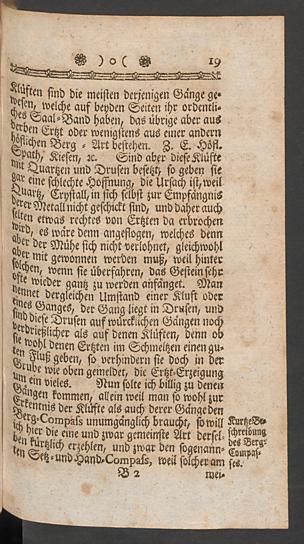 ❀ ) o ( ❀ 19
Klüften sind die meisten derjenigen Gänge ge-
wesen, welche auf beyden Seiten ihr ordentli-
ches Saal-Band haben, das übrige aber aus
derben Ertzt oder wenigstens aus einer andern
höflichen Berg-Art bestehen. Z. E. Höfl.
Spath, Kiesen, ꝛc. Sind aber diese Klüfte
mit Quartzen und Drusen besetzt, so geben sie
gar eine schlechte Hoffnung, die Ursach ist, weil
Quartz, Crystall, in sich selbst zur Empfängnis
derer Metall nicht geschickt sind, und daher auch
selten etwas rechtes von Ertzten da erbrochen
wird, es wäre denn angeflogen, welches denn
aber der Mühe sich nicht verlohnet, gleichwohl
aber mit gewonnen werden muß, weil hinter
solchen, wenn sie überfahren, das Gestein sehr
ofte wieder gantz zu werden anfänget. Man
nennet dergleichen Umstand einer Kluft oder
eines Ganges, der Gang liegt in Drusen, und
sind diese Drusen auf würcklichen Gängen noch
verdrießlicher als auf denen Klüften, denn ob
sie wohl denen Ertzten im Schmeltzen einen gu-
ten Fluß geben, so verhindern sie doch in der
Grube wie oben gemeldet, die Ertzt-Erzeigung
um ein vieles. Nun solte ich billig zu denen
Gängen kommen, allein weil man so wohl zur
Erkentnis der Klüfte als auch derer Gänge den
Berg-Compaß unumgänglich braucht, so will
ich hier die eine und zwar gemeinste Art dersel-
ben kürtzlich erzehlen, und zwar den sogenann-
ten Setz- und Hand-Compaß, weil solcher am
Kurtze Be-
schreibung
des Berg-
Compas-
ses.
B 2 mei-